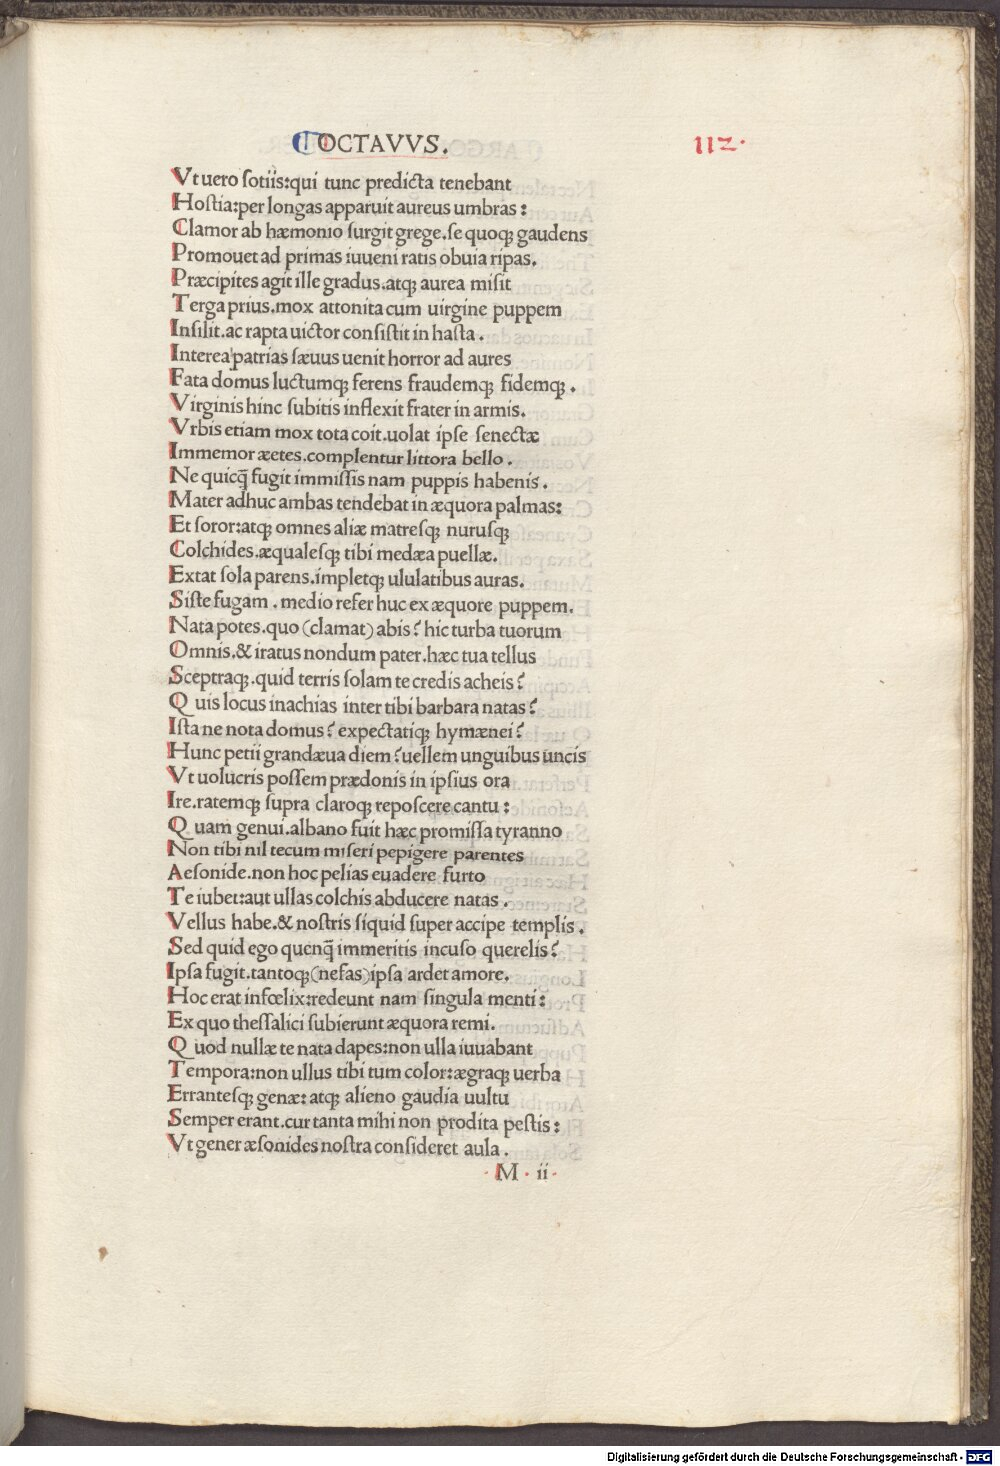 OCTAVVS. 112.
Vt uero sotiis:qui tunc predicta tenebant
Hostia:per longas apparuit aureus umbras:
Clamor ab hæmonio surgit grege.se quoqꝫ gaudens
Promouet ad primas iuueni ratis obuia ripas.
Præcipites agit ille gradus.atqꝫ aurea misit
Terga prius.mox attonita cum uirgine puppem
Insilit.ac rapta uictor consistit in hasta.
Interea patrias sæuus uenit horror ad aures
Fata domus luctumqꝫ ferens fraudemqꝫ fidemqꝫ.
Virginis hinc subitis inflexit frater in armis.
Vrbis etiam mox tota coit.uolat ipse senectæ
Immemor æetes.complentur littora bello.
Ne quicq̃ fugit immissis nam puppis habenis.
Mater adhuc ambas tendebat in æquora palmas:
Et soror:atqꝫ omnes aliæ matresqꝫ nurusqꝫ
Colchides.æqualesqꝫ tibi medæa puellæ.
Extat sola parens.impletqꝫ ululatibus auras.
Siste fugam.medio refer huc ex æquore puppem.
Nata potes.quo (clamat) abis? hic turba tuorum
Omnis.& iratus nondum pater.hæc tua tellus
Sceptraqꝫ.quid terris solam te credis acheis?
Quis locus inachias inter tibi barbara natas?
Ista ne nota domus? expectatiqꝫ hymænei?
Hunc petii grandæua diem? uellem unguibus uncis
Vt uolucris possem prædonis in ipsius ora
Ire.ratemqꝫ supra claroqꝫ reposcere cantu:
Quam genui.albano fuit hæc promissa tyranno
Non tibi nil tecum miseri pepigere parentes
Aesonide.non hoc pelias euadere furto
Te iubet:aut ullas colchis abducere natas.
Vellus habe.& nostris siquid super accipe templis.
Sed quid ego quenq̃ immeritis incuso querelis?
Ipsa fugit.tantoqꝫ (nefas) ipsa ardet amore.
Hoc erat infœlix:redeunt nam singula menti:
Ex quo thessalici subierunt æquora remi.
Quod nullæ te nata dapes:non ulla iuuabant
Tempora:non ullus tibi tum color:ægraqꝫ uerba
Errantesqꝫ genæ: atqꝫ alieno gaudia uultu
Semper erant.cur tanta mihi non prodita pestis:
Vt gener æsonides nostra consideret aula.
M. ii
Digitalisierung gefördert durch die Deutsche Forschungsgemeinschaft - DFG